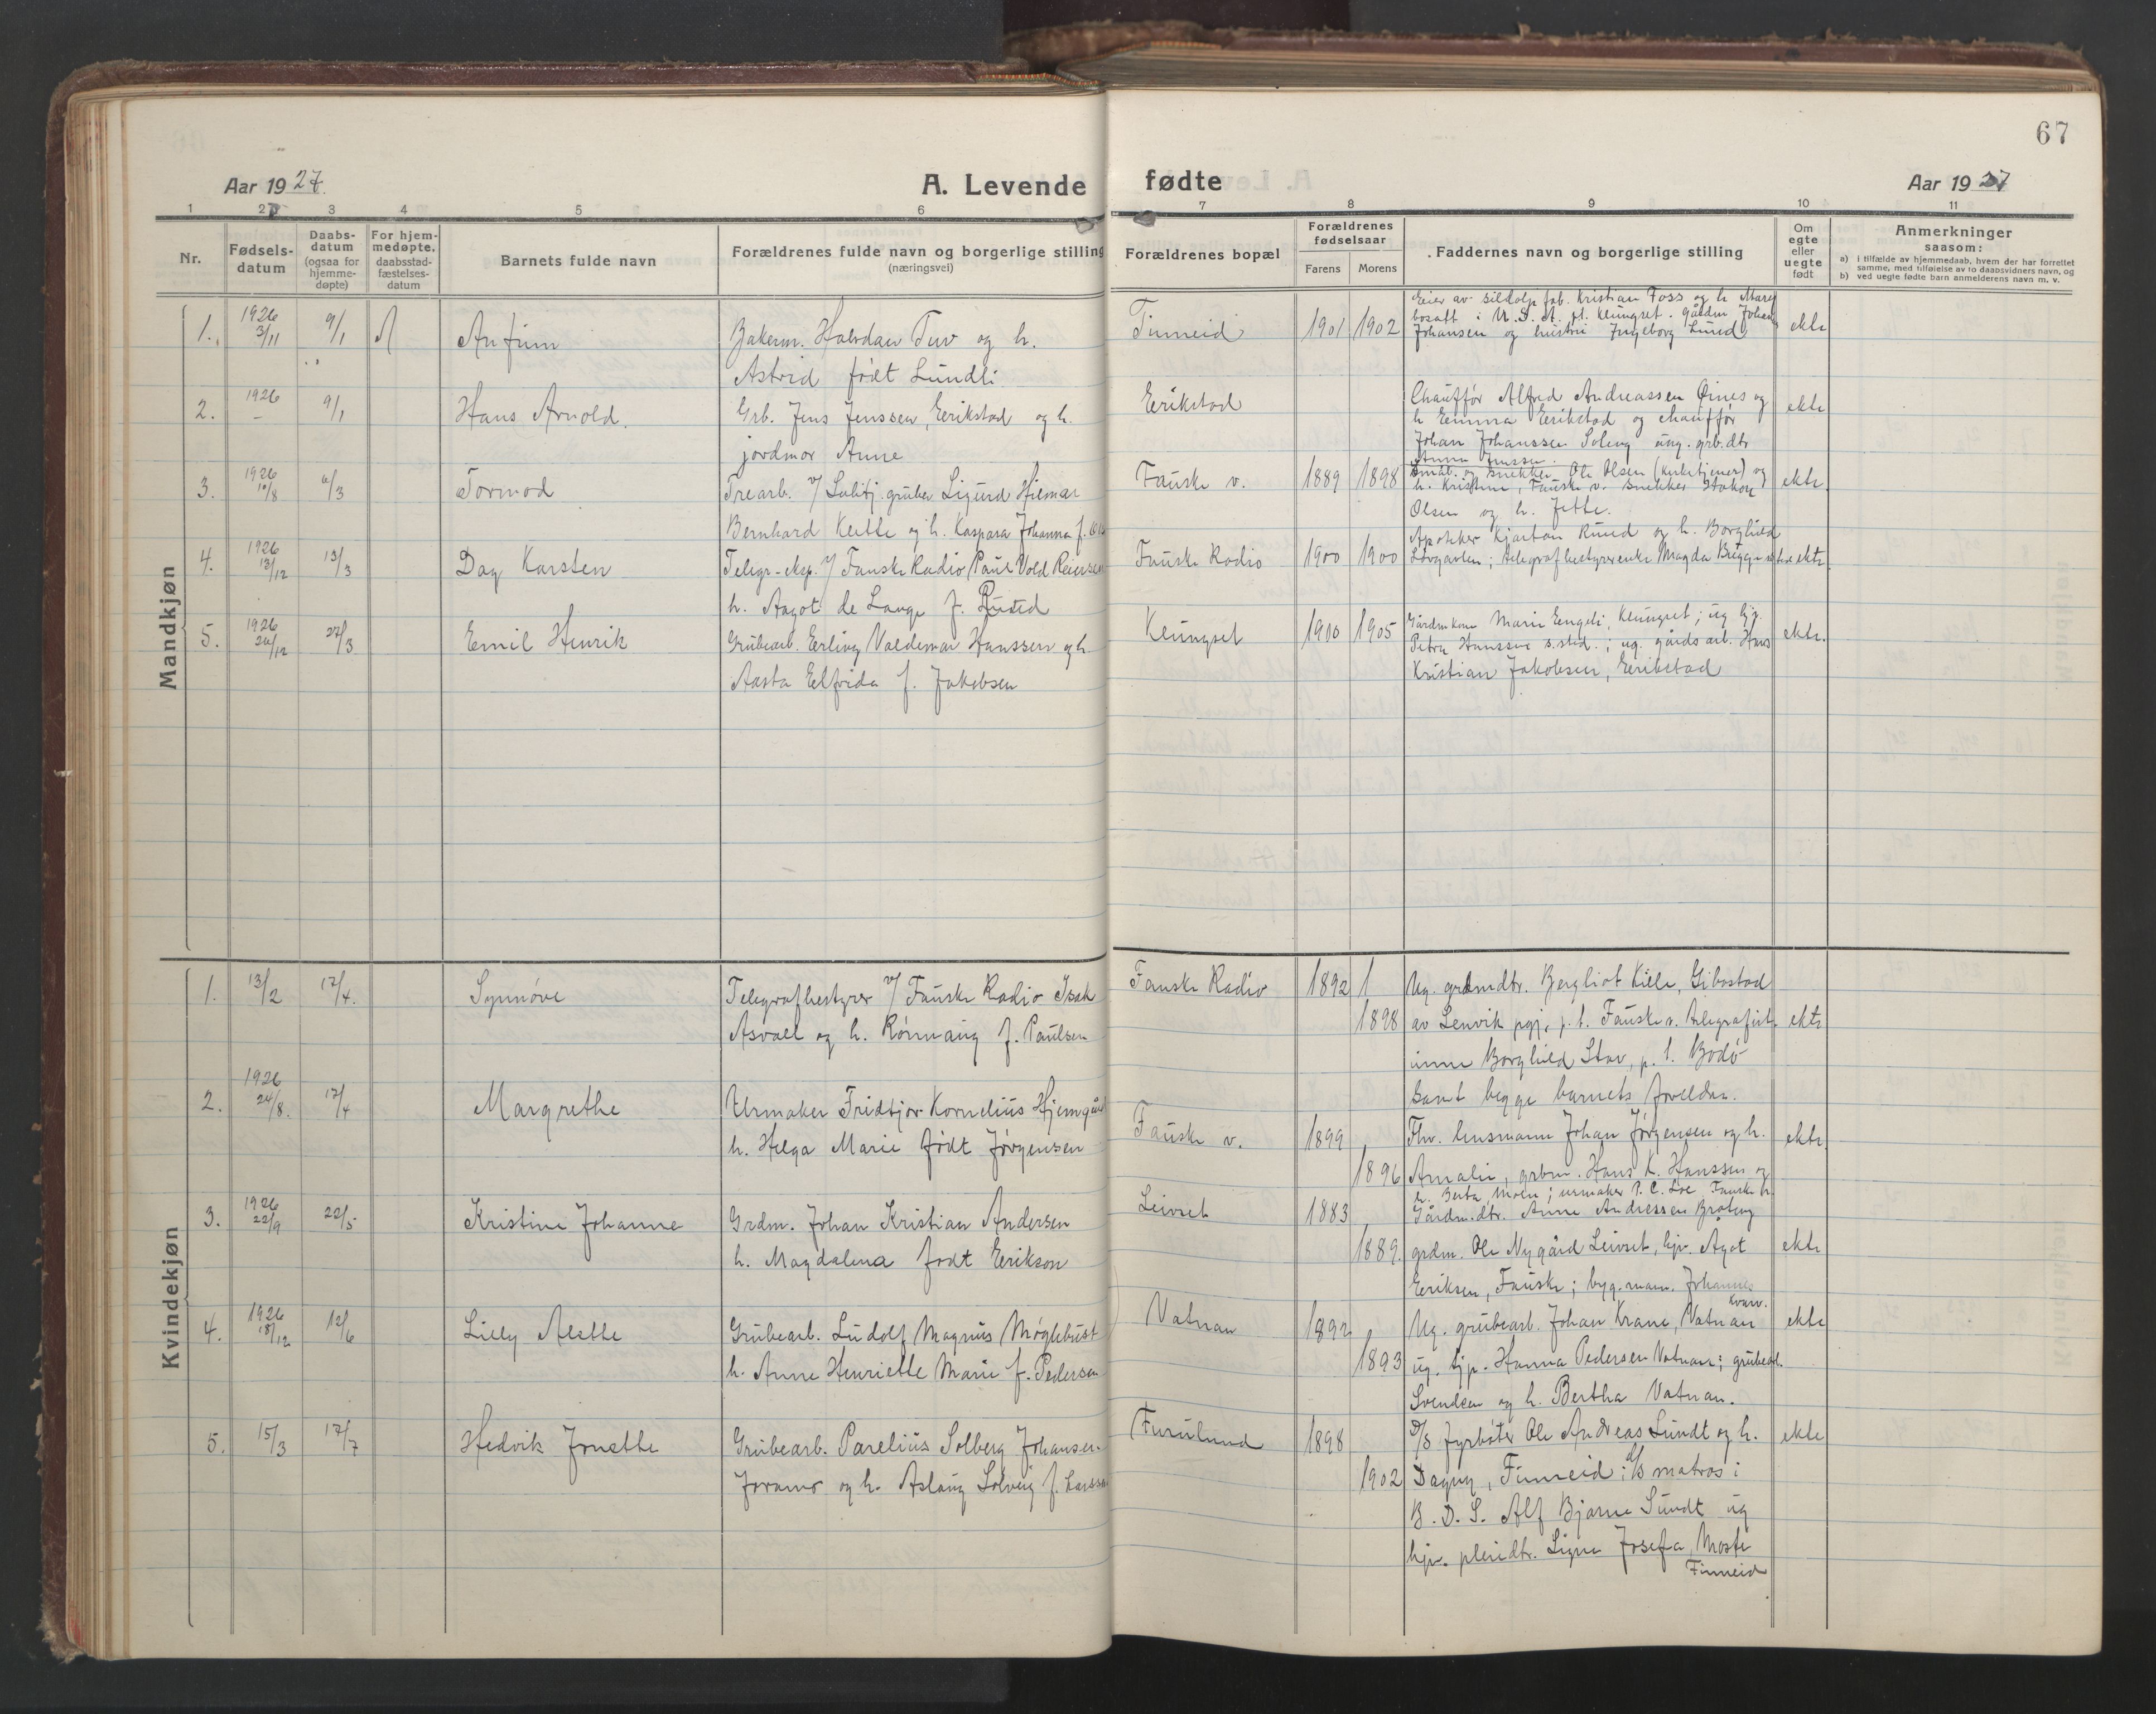 67
Aar 1927.
A. Levende
fødte
Aar 1927
1 2 3 4 5 6 7 8 9 10 11
Nr.
Fødsels-
datum
Daabs-
datum
(ogsaa for
hjemme-
døpte)
For hjem-
medøpte,
daabsstad-
fæstelses-
datum
Barnets fulde navn
Forældrenes fulde navn og borgerlige stilling
(næringsvei)
Forældrenes bopæl
Forældrenes
fødselsaar
Farens Morens
Faddernes navn og borgerlige stilling
Om
egte
eller
uegte
født
Anmerkninger
saasom:
a) i tilfælde av hjemmedaab, hvem der har forrettet
samme, med tilføielse av to daabsvidners navn, og
b) ved uegte fødte barn anmelderens navn m. v.
Mandkjøn
1. 1926 3/11 9/1
Anfinn
Bakerm. Halvdan Tuv og h.
Astrid født Lundli
Finneid
1901 1902
Eier av sildolje fab. Kristian Foss og h.
bosatt i U.S.A. Klungset. gårdm
Johansen og hustru Ingeborg Lund
ekte
2. 1926 – 9/1
Hans Arnold.
Grb. Jens Jenssen, Erikstad og h.
jordmor Anne
Erikstad
Chauffør Alfred Andreassen Øines og
h Emma Erikstad og chauffør
Johan Johanssen Soleng ung. grb.dtr
Anna Jenssen.
ekte
3. 1926 10/8 6/3
Tormod
Trearb. v/ Sulitj. gruber Sigurd Hilmar
Bernhard Klette og h. Kaspara Johanna f.
Fauske v.
1889 1898
Småb. og snekker Ole Olsen (kirketjener) og
h. Kristine, Fauske v. snekker Håkon
Olsen og h. Jette.
ekte.
4. 1926 13/12 13/3
Dag Karsten
Telegr-eksp. v/ Fauske Radio Paul Vold Reiersen
h. Aagot de Lange f. Rused
Fauske Radio
1900 1900
Apoteker Kjartan Ruud og h. Borghild
Løvgavlen; telegrafbestyrerenke Magda
ekte.
5. 1926 26/12 27/3
Emil Henrik
Grubearb. Erling Valdemar Hanssen og h.
Aasta Elfrida f. Jakobsen
Klungset
1900 1905
Gårdm.kone Marie Engeli, Klungset; ug tjp.
Petra Hanssen s.sted.; ug. gårds arb. Hans
Kristian Jakobsen, Erikstad
ekte.
Kvindekjøn
1. 13/2 17/4.
Synnøve
Telegrafbestyrer v/ Fauske Radio Isak
Asvall og h. Rønnaug f. Paulsen
Fauske Radio
1892 1898
Ug. grdmdtr. Bergliot Kille, Gibostad
av Lenvik pgj., p.t. Fauske v. telegrafist-
inne Borghild Stav, p. t. Bodø
samt begge barnets foreldre.
ekte
2. 1926 24/8. 17/4
Margrethe
Urmaker Fridtjov Kornelius Hjemgård
h. Helga Marie født Jørgensen
Fauske v.
1899 1896
Fhv. lensmann Johan Jørgensen og h.
Amalie, grbm. Hans K. Hanssen og
h. Berta, Moen; urmaker P. C. Loe, Fauske v.
ekte.
3. 1926 22/9 22/5
Kristine Johanne
Grdm. Johan Kristian Andersen
h. Magdalena født Erikson
Leivset
1883 1889.
Gårdm.dtr. Anne Andressen Bråten
grdm. Ole Nygård Leivset, hjv. Agot
Eriksen, Fauske; byg.mann. Johannes
Kvarv.
ekte
4. 1926 18/12 12/6
Lilly Alette
Grubearb. Ludolf Magnus Møglebust
h. Anne Henriette Marie f. Pedersen
Vatnan
1892 1893
Ug. grubearb. Johan Krane, Vatnan
ug. tjp. Hanna Pedersen Vatnan; grubearb.
Svendsen og h. Bertha Vatnan.
ekte
5. 15/3 17/7
Hedvik Jonette
Grubearb. Parelius Solberg Johansen-
Joramo og h. Aslaug Solveig f. Larssen
Furulund
1898 1902
D/S fyrbøter Ole Andreas Sundt og h.
Dagny, Finneid; D/S matros i
B. D. S. Alf Bjarne Sundt ug
hjv. pleiedtr. Signe Josefa, Moste
Finneid
ekte